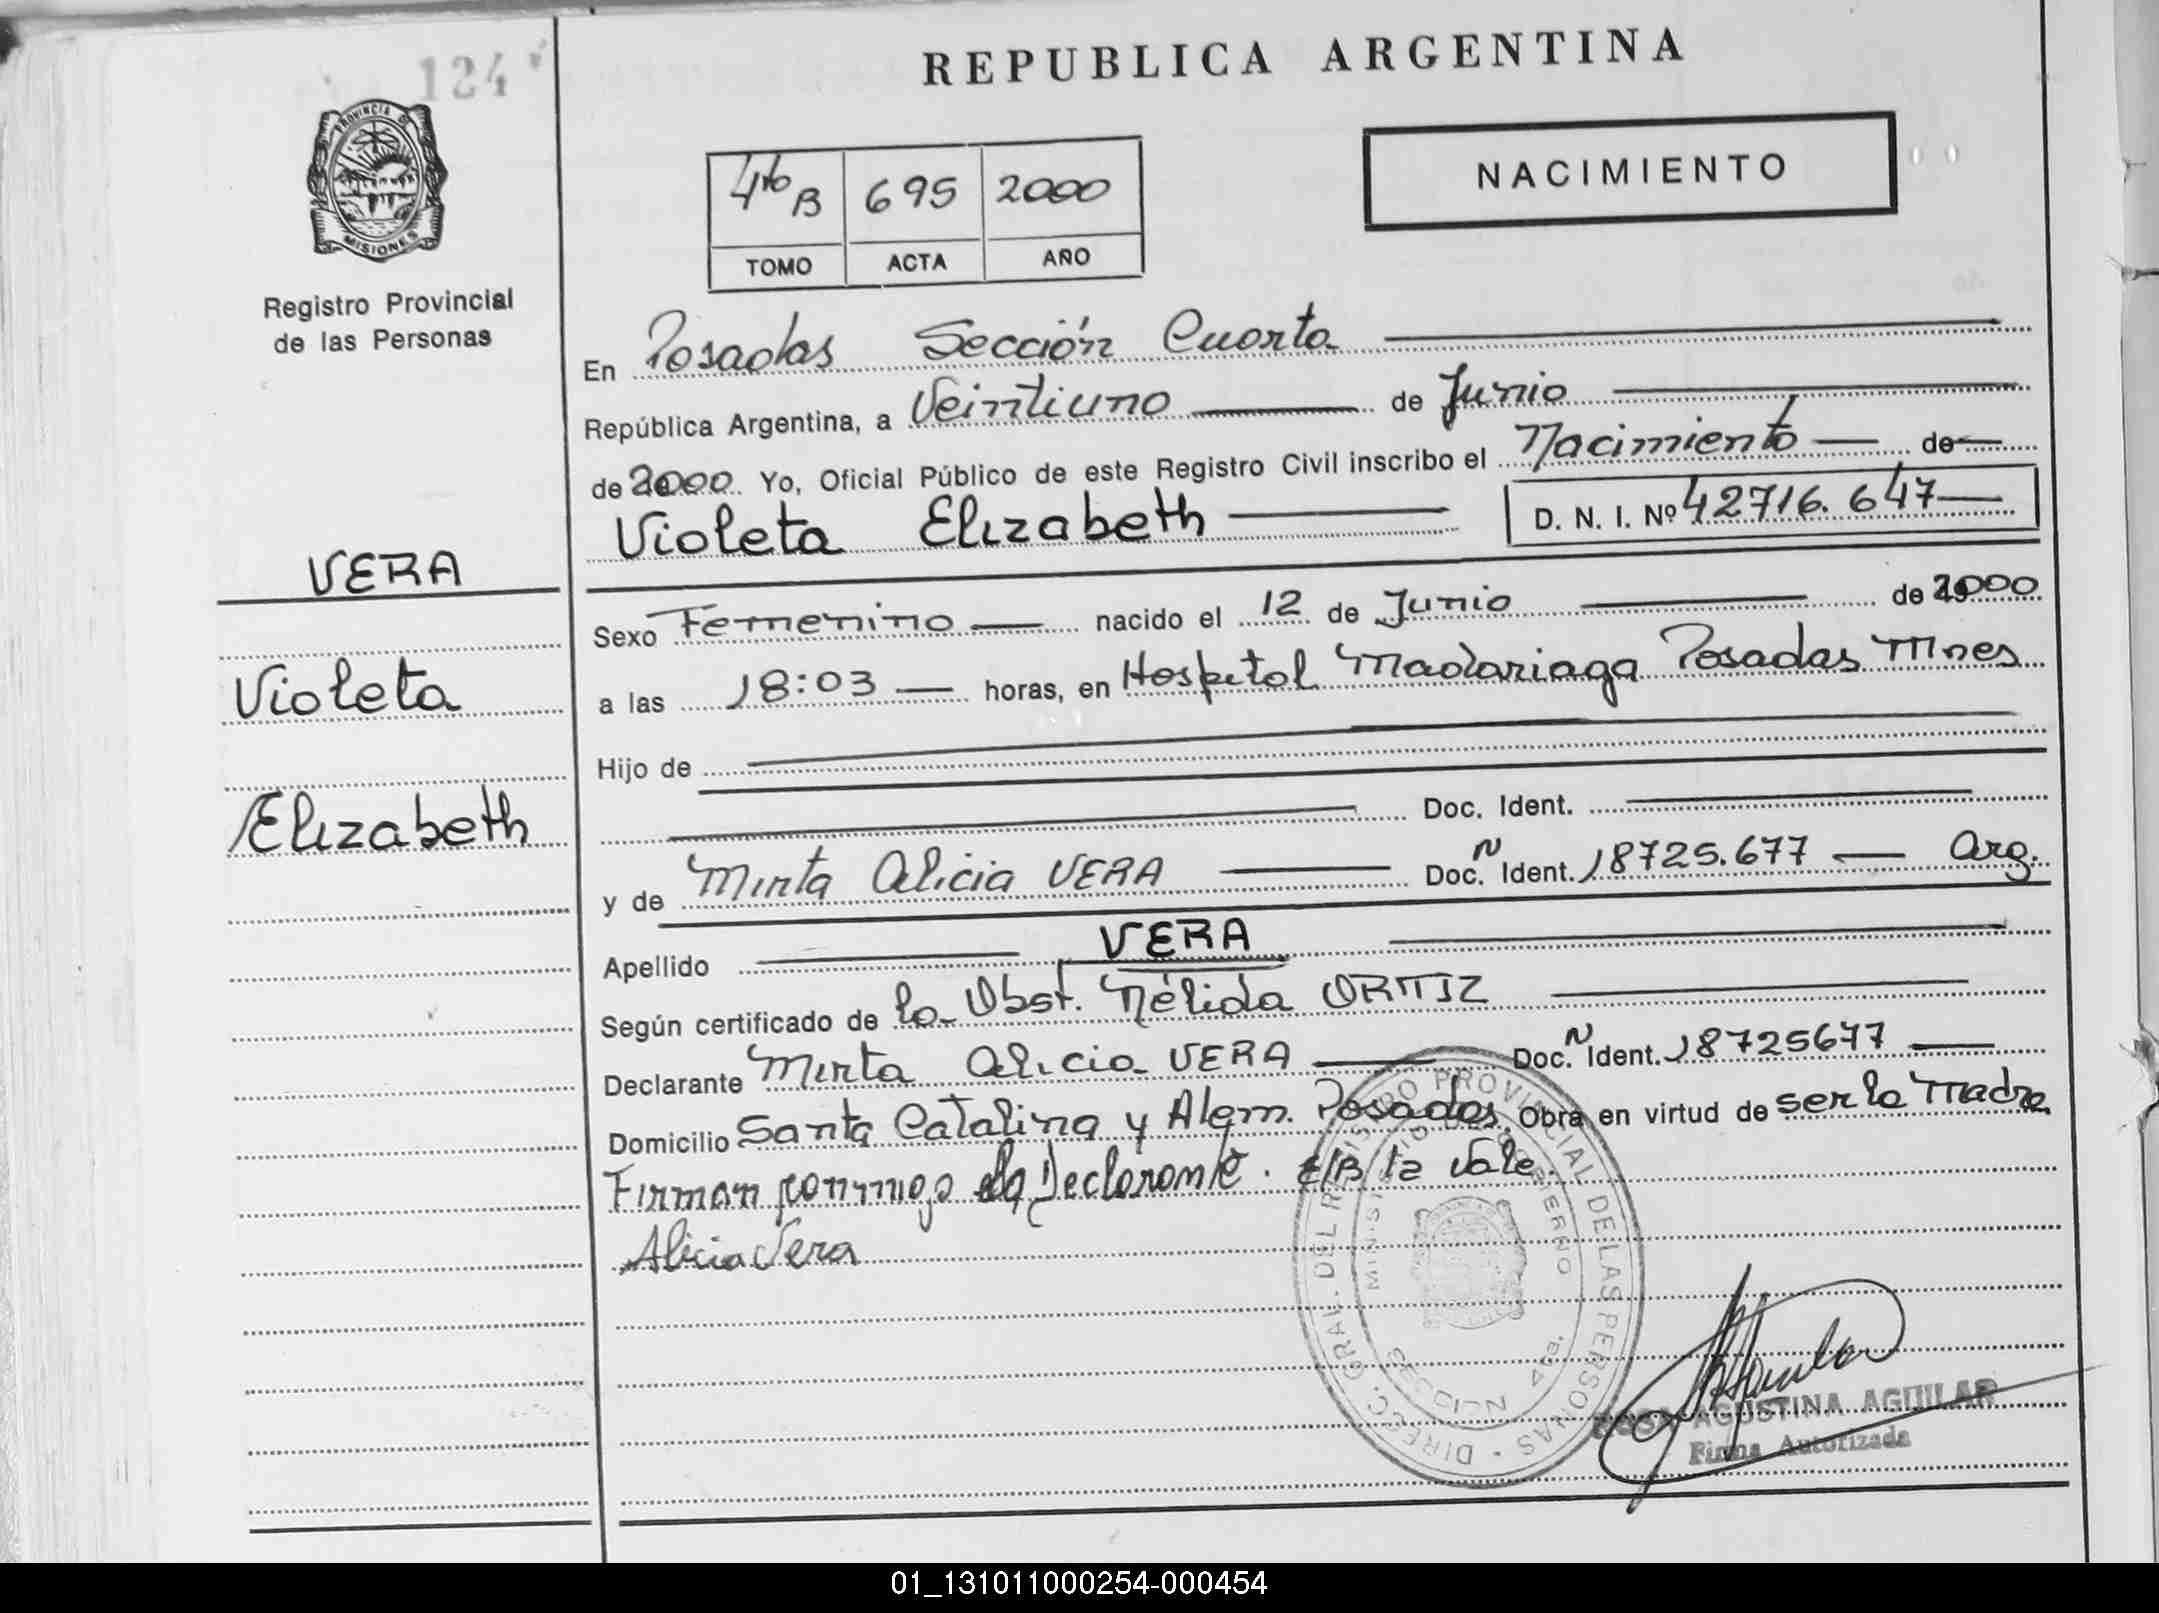 124
REPUBLICA ARGENTINA
PROVINCIA DE
MISIONES
Registro Provincial
de las Personas
4to B 695 2000
TOMO ACTA AÑO
NACIMIENTO
En Posadas Sección Cuarta
República Argentina, a Veintiuno de Junio
de 2000 Yo, Oficial Público de este Registro Civil inscribo el Nacimiento de
Violeta Elizabeth D. N. I. Nº 42716.647
VERA
Violeta
Elizabeth
Sexo Femenino nacido el 12 de Junio de 2000
a las 18:03 horas, en Hospital Madariaga Posadas Mnes
Hijo de
Doc. Ident.
y de Mirta Alicia VERA Doc. N Ident. 18725.677 Arg.
Apellido VERA
Según certificado de la Obst. Nélida ORTIZ
Declarante Mirta Alicia VERA Doc. N Ident. 18725677
Domicilio Santa Catalina y Alem. Posadas. Obra en virtud de ser la Madre
Firman conmigo la Declarante. E/B la Vale.
Alicia Vera
DIRECC. GRAL. DEL REGISTRO PROVINCIAL DE LAS PERSONAS
MINISTERIO DE GOBIERNO
SECCION 4ta.
ROSA AGUSTINA AGUILAR
Firma Autorizada
01_131011000254-000454